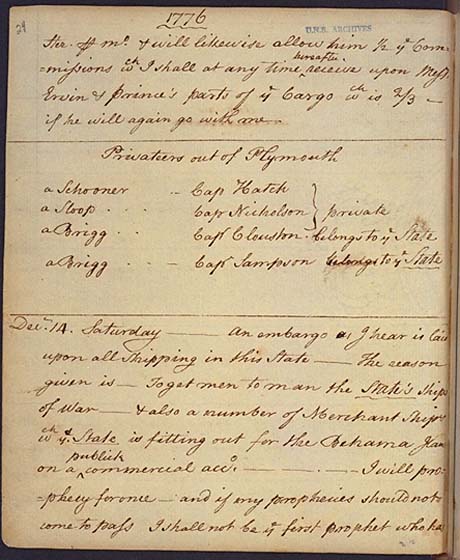 29
1776
O.N.B. ARCHIVES
Her. & will likewise allow him 1/2 ye Com-
missions wch I shall at any time hereafter receive upon Messrs
Ervin & prince's parts of ye Cargo wch is 2/3 -
if he will again go with me -
Privateers out of Plymouth
a Schooner .. Cap Hatch
a Sloop . . Cap Nicholson } private
a Brigg . . Capt Clouston . belongs to ye State
a Brigg .. Capt Sampson belongs to ye State
Decr. 14. Saturday — An embargo as I hear is laid
upon all shipping in this State — The reason
given is — To get men to man the State's Ships
of War — & also a number of Merchant Ships
wch ye State is fitting out for the Behama
on a publick commercial acco. — I will pro-
-phecy for once — and if my prophecies should not
come to pass I shall not be ye first prophet who has